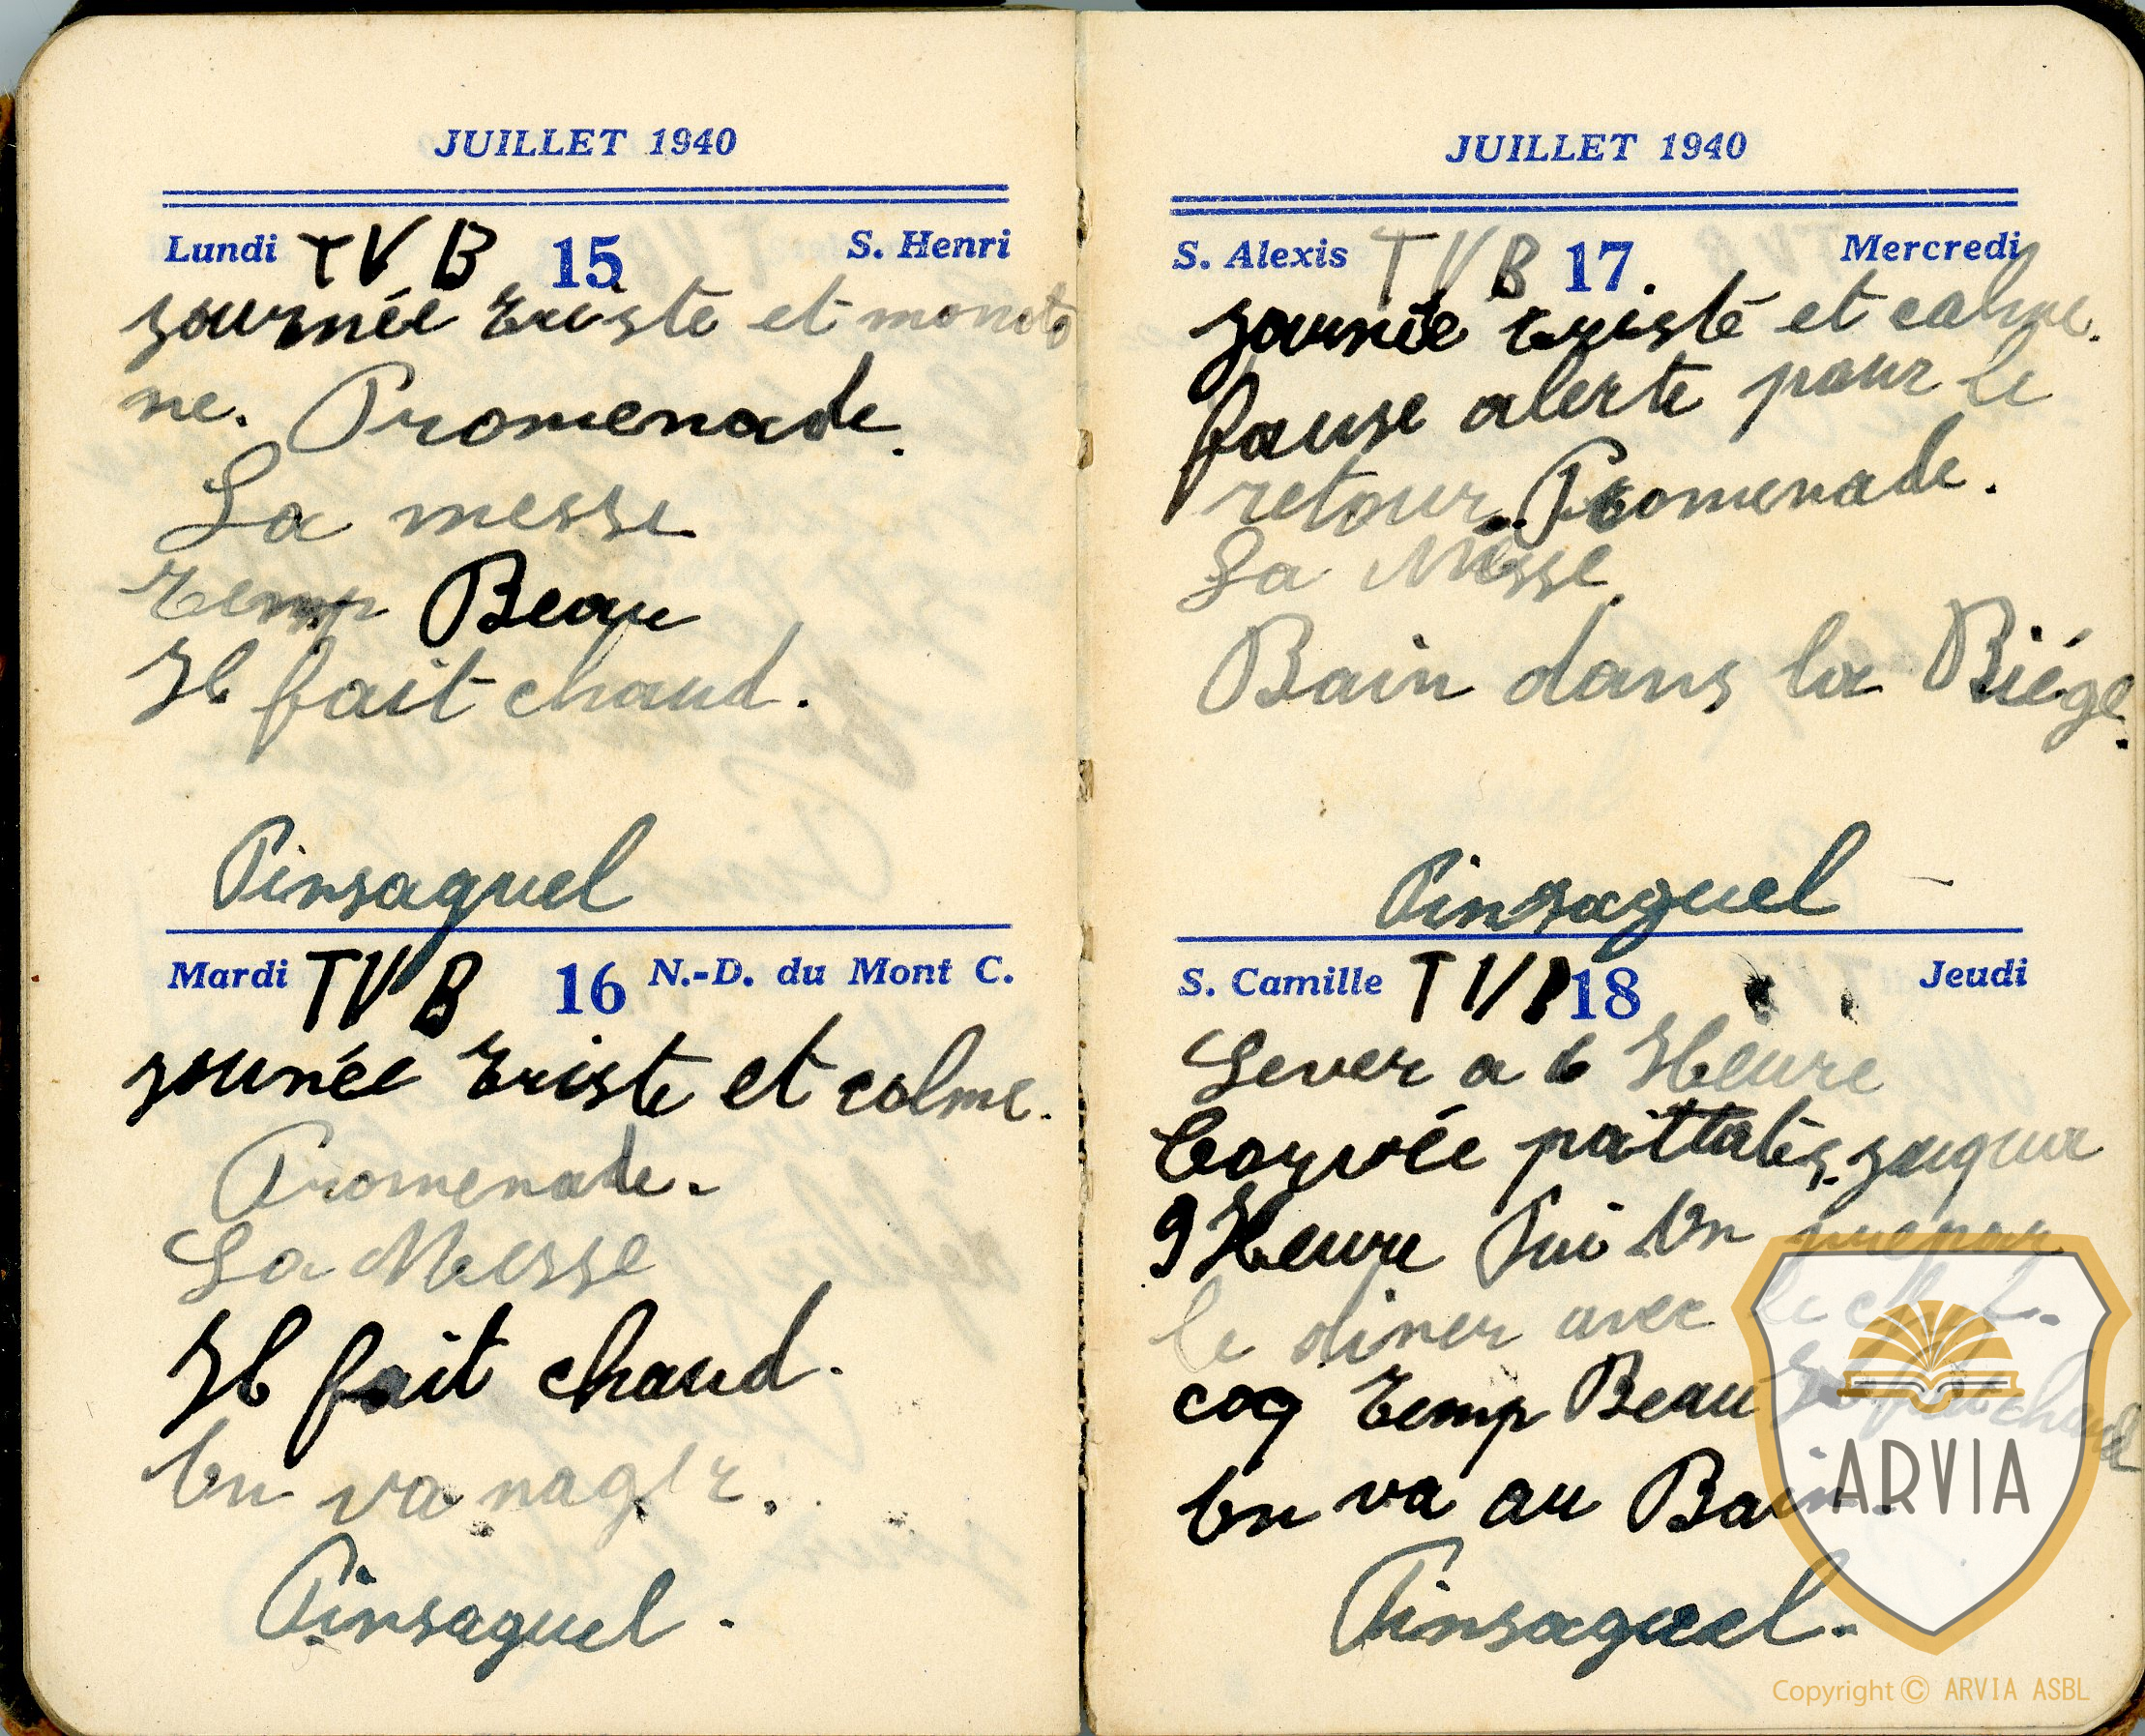 JUILLET 1940
Lundi TVB 15 S. Henri
Journée triste et monoto
ne. Promenade.
La messe
temp Beau
Il fait chaud.
Pinsaguel
Mardi TVB 16 N.-D. du Mont C.
Jounée triste et calme.
Promenade.
La Messe
Il fait chaud.
On va nager.
Pinsaguel.
JUILLET 1940
S. Alexis TVB 17 Mercredi
Journée triste et calme.
fause alerte pour le
retour. Promenade.
La Messe.
Bain dans la Riége.
Pinsaguel
S. Camille TVB 18 Jeudi
Lever a 6 Heure
Corvée jusqua
9 Heure Pui On prepare
le diner avec le chef.
coq temp Beau Il fait chaud
On va au Bain.
Pinsaguel.
ARVIA
Copyright © ARVIA ASBL